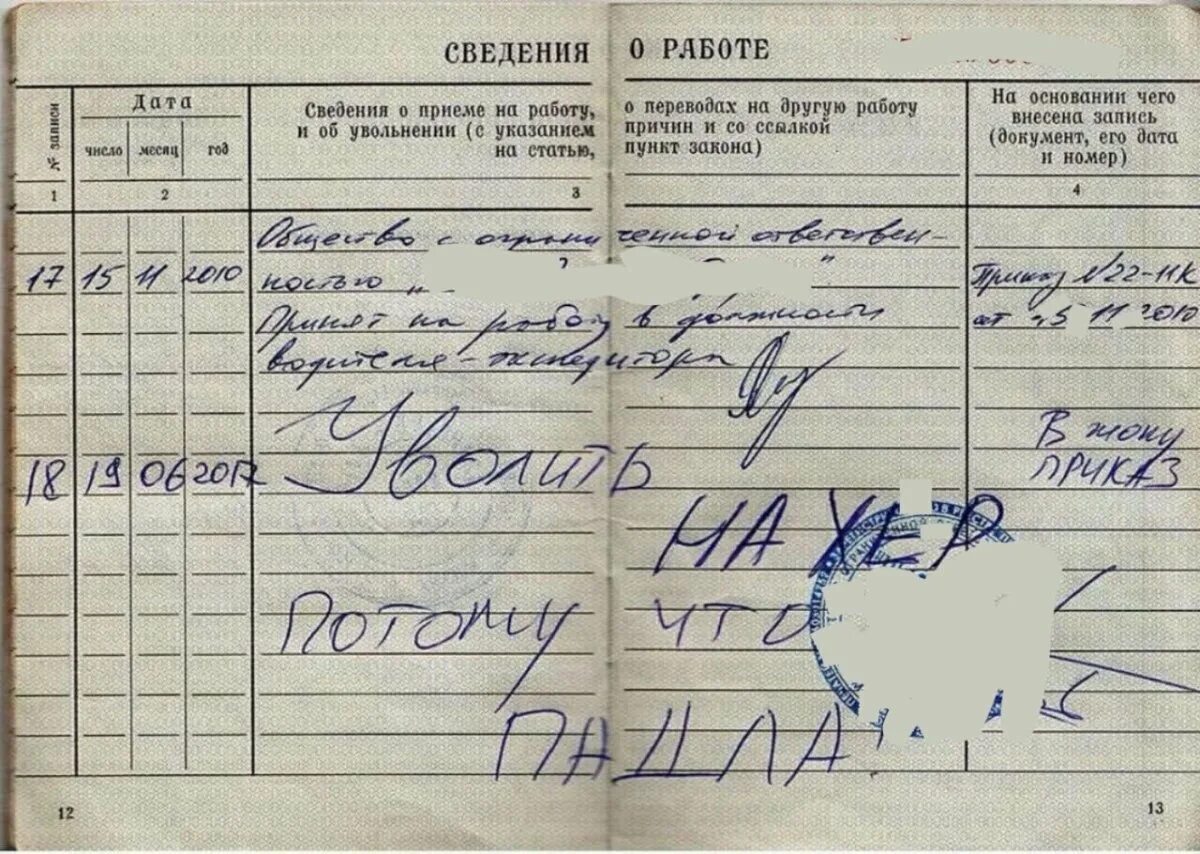 СВЕДЕНИЯ О РАБОТЕ
№ записи
Дата
число месяц год
Сведения о приеме на работу, о переводах на другую работу
и об увольнении (с указанием причин и со ссылкой
на статью, пункт закона)
На основании чего
внесена запись
(документ, его дата
и номер)
1 2 3 4
Общество с ограниченной ответствен-
17 15 11 2010 ностью „ " Приказ №22-11К
Принят на работу в должности от 11 2010
водителя-экспедитора
В жопу
18 19 06 2017 Уволить ПРИКАЗ
НА ХЕР
ПОТОМУ ЧТО
ПАДЛА
12 13